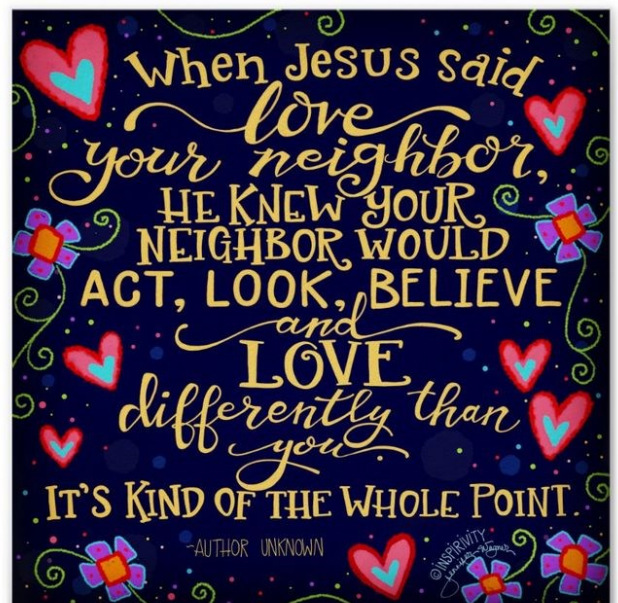 When Jesus said
love
your neighbor,
HE KNEW YOUR
NEIGHBOR WOULD
ACT, LOOK, BELIEVE
and
LOVE
differently than
you
IT'S KIND OF THE WHOLE POINT.
~AUTHOR UNKNOWN
©INSPIRIVITY
Jennifer Wagner